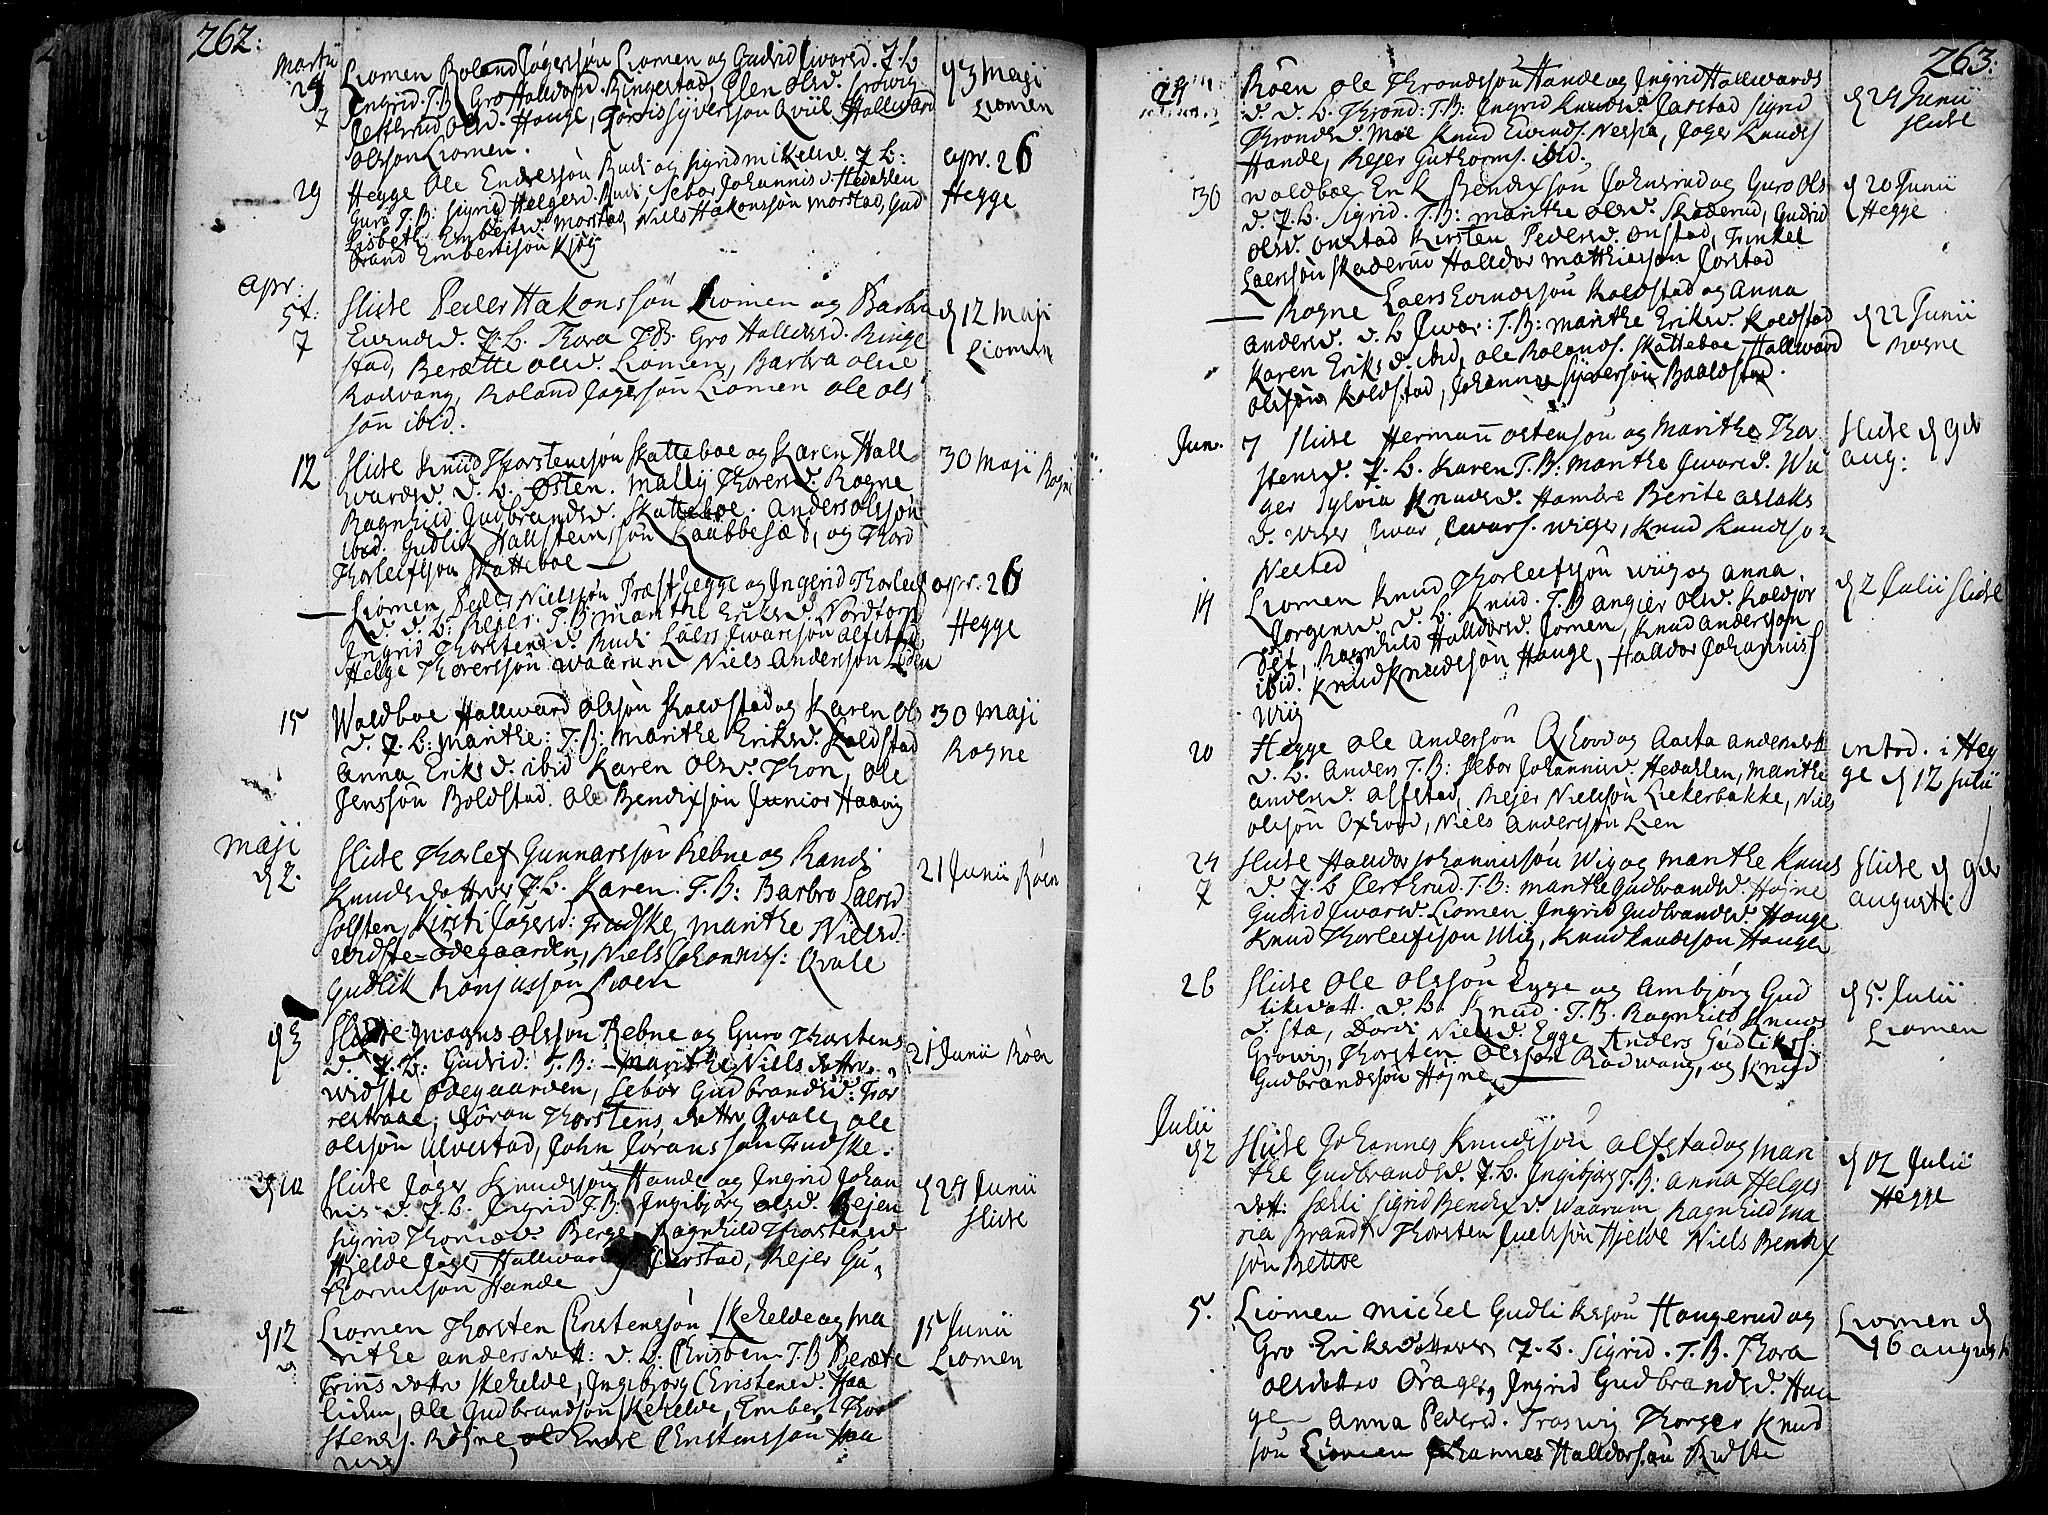 262:
Martii
29 Liomen Roland Jøgerssøn Liomen og Gudrid Iwarsd. J. L.
7 Ingrid. T.B. Gro Halldorsd. Ringestad, Elen Olsd. Growig
Olsd. Hauge, Syverssøn Qviil Hallward
Olssøn Liomen.
23 Maji
Liomen
29 Hegge Ole Endressøn Rudi og Sigrid Mikelsd. J. L:
Guro T.B: Sigrid Helgesd. Rudi Sebor Johannisd. Hedahlen
Lisbeth Embertsd. Morstad, Niels Hakonssøn Morstad, Gud
brand Embertssøn
apr. 26
Hegge
Apr:
5t. Slidre Peder Hakonssøn Liomen og Barbra
7 Eivindsd. J.L. Thora T.B. Gro Halldorsd. Ringe
stad, Berætte Olsd. Liomen, Barbra Olsd
Rodvang, Roland Jøgerssøn Liomen Ole Ols
søn ibid.
d 12 Maji
Liomen
12 Slidre Knud Thorstenssøn Skatteboe og Karen Hall
wardsd. d. L. Østen. Mally Thoresd. Rogne
Ragnhild Gudbrandsd. Skatteboe. Anders Olssøn
ibid. Gudlik Hallsteinssøn Kaabbesæt, og Thord
Thorleifssøn Skatteboe
30 Maji Rogne
— Liomen Peder Nielssøn Præsthegge og Ingerid Thorleifs
d. d. L: Rejer. T.B: Marithe Eriksd. Nordtorp
Ingrid Thorstensd. Rudi Laers Iwarssøn Alfstad
Helge Thoressøn Waarum Niels Anderssøn Lien
apr. 26
Hegge
15 Woldboe Hallward Olssøn Koldstad og Karen Ols
d. J. L: Marithe: T.B: Marithe Eriksd. Koldstad
Anna Eriksd. ibid Karen Olsd. Thon, Ole
Jenssøn Boldstad. Ole Bendixsøn Junior Haavig
30 Maji
Rogne
Maji
d 2. Slidre Thorlef Gunnarssøn Rebne og Randi
Knudsdatter J.L. Karen. T.B: Barbro Laersd
Solsten, Kirsti Jøgersd. Fredske, Marithe Nielsd.
Widste-Odegaarden, Niels Johanniss: Qvale
Gudlik Ronjussøn Røen
21 Junii Røen
d 3 Slidre Mogns Olssøn Rebne og Guro Thorstens
d. J. L: Gudrid: T.B: Marithe Niels datter
Widste Odegaarden, Sebor Gudbrandsd:
Jøran Thorstens datter Qvale, Ole
Olssøn Ulvestad, John Joranssøn Fredske.
21 Junii Røen
d 10 Slidre Jøger Knudssøn Hande og Ingrid Johan
nisd. J. L. Ingrid T.B: Ingibjørg Olsd. Rejen
Sigrid Thomæd. Berge, Ragnhild Thorstensd
Hielde Jøger Hallward Jarstad, Rejer Gu
thormssøn Hande
d 24 Junii
Slidre
d 12 Liomen Thorsten Christenssøn Skehelde og Ma
rithe Andersdatt: d. L: Christen T.B Beræte
Finns datter Skehelde, Ingibjørg Christensd. Haa
lien, Ole Gudbrandssøn Skehelde, Embert Thor
stens. Rogne Endre Christenssøn Haa
15 Junii
Liomen
263:
Røen Ole Throndssøn Hande og Ingrid Hallwards
d. d. L. Thrond: T.B: Ingrid Knudsd. Jarstad Sigrid
Throndsd. Moe Knud Eivinds. Nespa, Jøger Knuds
Hande, Rejer Guthorms. ibid.
d 24 Junii
Slidre
30 Woldboe Erik Bendixsøn Johnsrud og Guro Ols
d. J. L. Sigrid. T.B: Marithe Olsd. Skaderud, Gudrid
Olsd. Onstad Kirsten Pedersd. Onstad, Trinkel
Laerssøn Skaderud Halldor Matthiessøn Jorstad
d 20 Junii
Hegge
— Rogne Laers Eivindssøn Koldstad og Anna
Andersd. d. L Iwar: T.B: Marithe Eriksd. Koldstad
Karen Eriksd. ibid, Ole Rolands. Skatteboe, Hallward
Olssøn Koldstad, Johannes Syverssøn Baaldstad.
d 22 Junii
Rogne
Jun. 7 Slidre Hermann Ostenssøn og Marithe Thor
stensd. J. L. Karen T.B: Marithe Iwarsd. Wi
ger Sylvia Knudsd. Hambre Berite Aslaks
d. Wiger, Iwar Iwars. Wiger, Knud Knudssøn
Nested
Slidre d 9de
aug:
14 Liomen Knud Thorleifssøn Wig og Anna
Jorgensd. d. L. Knud. T.B Angier Olsd. Koldsør
Ragnhild Halldorsd. Jomen, Knud Anderssøn
ibid. Knud Knudssøn Hauge, Halldor Johannis
Wiig
d 2 Julii Slidre
20 Hegge Ole Anderssøn Oxhovd og Aasta Andersdatt
d. L. Anders T.B: Sebor Johannisd. Hedahlen, Marithe
Andersd. Alfstad, Rejer Nielssøn Liekerbakke, Niels
Olssøn Oxhovd, Niels Anderssøn Lien
introd. i Heg
ge d 12 Julii
24 Slidre Halldor Johannissøn Wig og Marithe Knuds
7 d. J. L Certhrud T.B: Marithe Gudbrandsd. Højne
Gudrid Iwarsd. Liomen Ingrid Gudbrandsd. Hauge
Knud Thorleifssøn Wig, Knud Knudssøn Hauge
Slidre d 9de
Augusti
26 Slidre Ole Olssøn Egge og Ambjørg Gud
likdatt. d. L: Knud. T.B. Ragnhild Knuds
d. sta, Dordi Nielsd. Egge Anders Gudliks:
Growig, Thorsten Olssøn Rodwang, og Knud
Gudbrandssøn Højne
d 5. Julii
Liomen
Julii
d 2 Slidre Johannes Knudssøn Alfstad og Mari
the Gudbrandsd. J. L. Ingibjørg T.B: Anna Helges
datt: Sælli Sigrid Bendixd. Waarum Ragnhild Ma
ria Brandt Thorsten Juelssøn Hjelde Niels Bendix
søn Bettoe
d 12 Julii
Hegge
5. Liomen Michel Gudlikssøn Haugerud og
Gro Eriksdatter J. L. Sigrid. T.B. Thora
Olsdatter Orager, Ingrid Gudbrandsd. Hau
ge Anna Pedersd. Froswig Thorger Knud
søn Liomen Johannes Halldorssøn Ridste
Liomen d
16 august